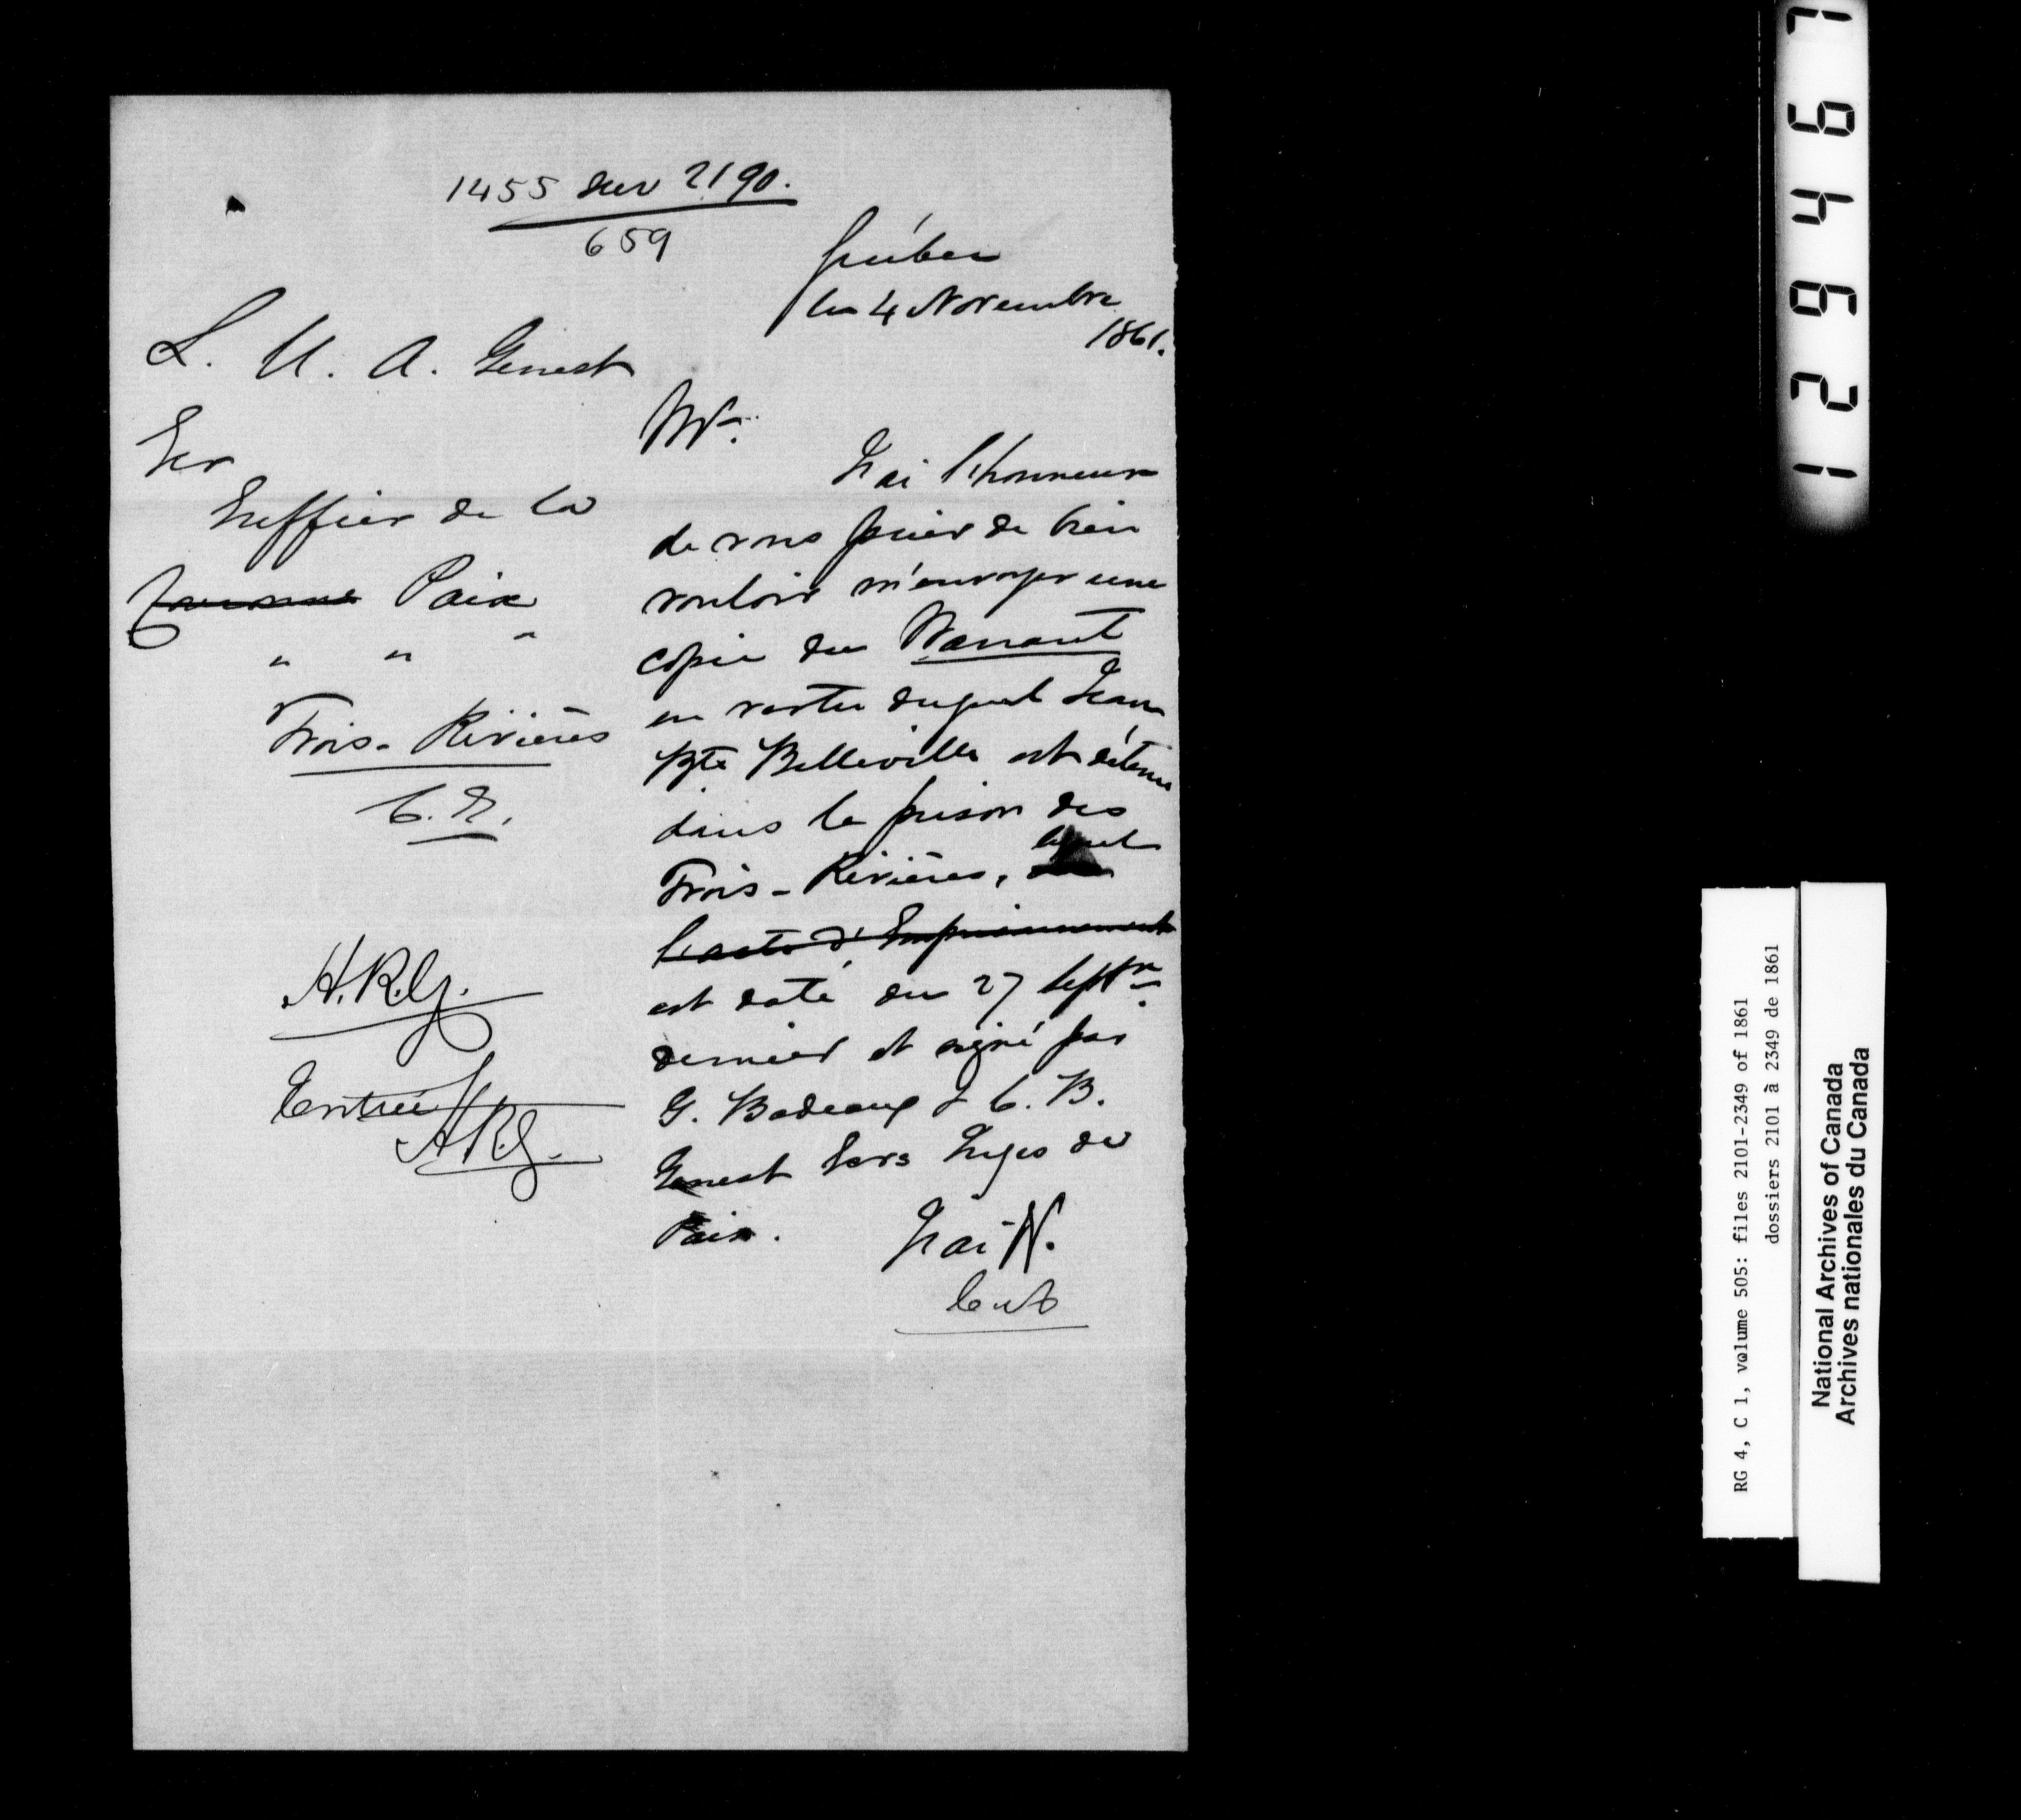 1455 sur 2190.
659
Québec
le 4 Novembre
1861.
L. U. A. Genest
Ecr
Greffier de la
Couronne Paix
" " "
Trois-Rivières
C. E.
Mr.
J'ai l'honneur
de vous prier de bien
vouloir m'envoyer une
copie du Warrant
en vertu duquel Jean
Bte Belleville est détenu
dans la prison des
lequel
Trois-Rivières,
l'acte d'Emprisonnement
est daté du 27 Septre
dernier et signé par
G. Badeaux & C. B.
Genest Ecrs Juges de
Paix.
J'ai N.
A.R.G.
Entrée
A.R.G.
129467
RG 4, C 1, volume 505: files 2101-2349 of 1861
dossiers 2101 à 2349 de 1861
National Archives of Canada
Archives nationales du Canada